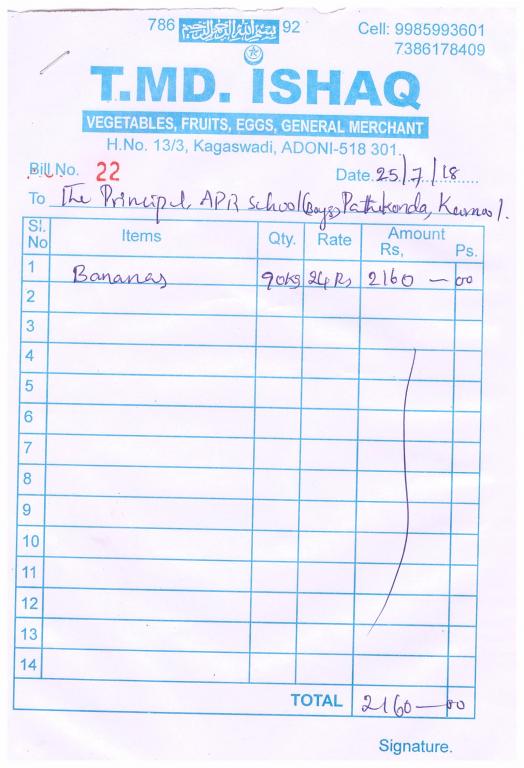 786 بسم الله الرحمن الرحيم 92
Cell: 9985993601
7386178409
T.MD. ISHAQ
VEGETABLES, FRUITS, EGGS, GENERAL MERCHANT
H.No. 13/3, Kagaswadi, ADONI-518 301.
Bill No. 22
Date.25/7/18
To The Principl, APR School (Boys) Pathikonda, Kurnool.
Sl. No Items Qty. Rate Amount Rs, Ps.
1 Bananas 90kg 24 Rs 2160 — 00
2
3
4
5
6
7
8
9
10
11
12
13
14
TOTAL 2160 — 00
Signature.